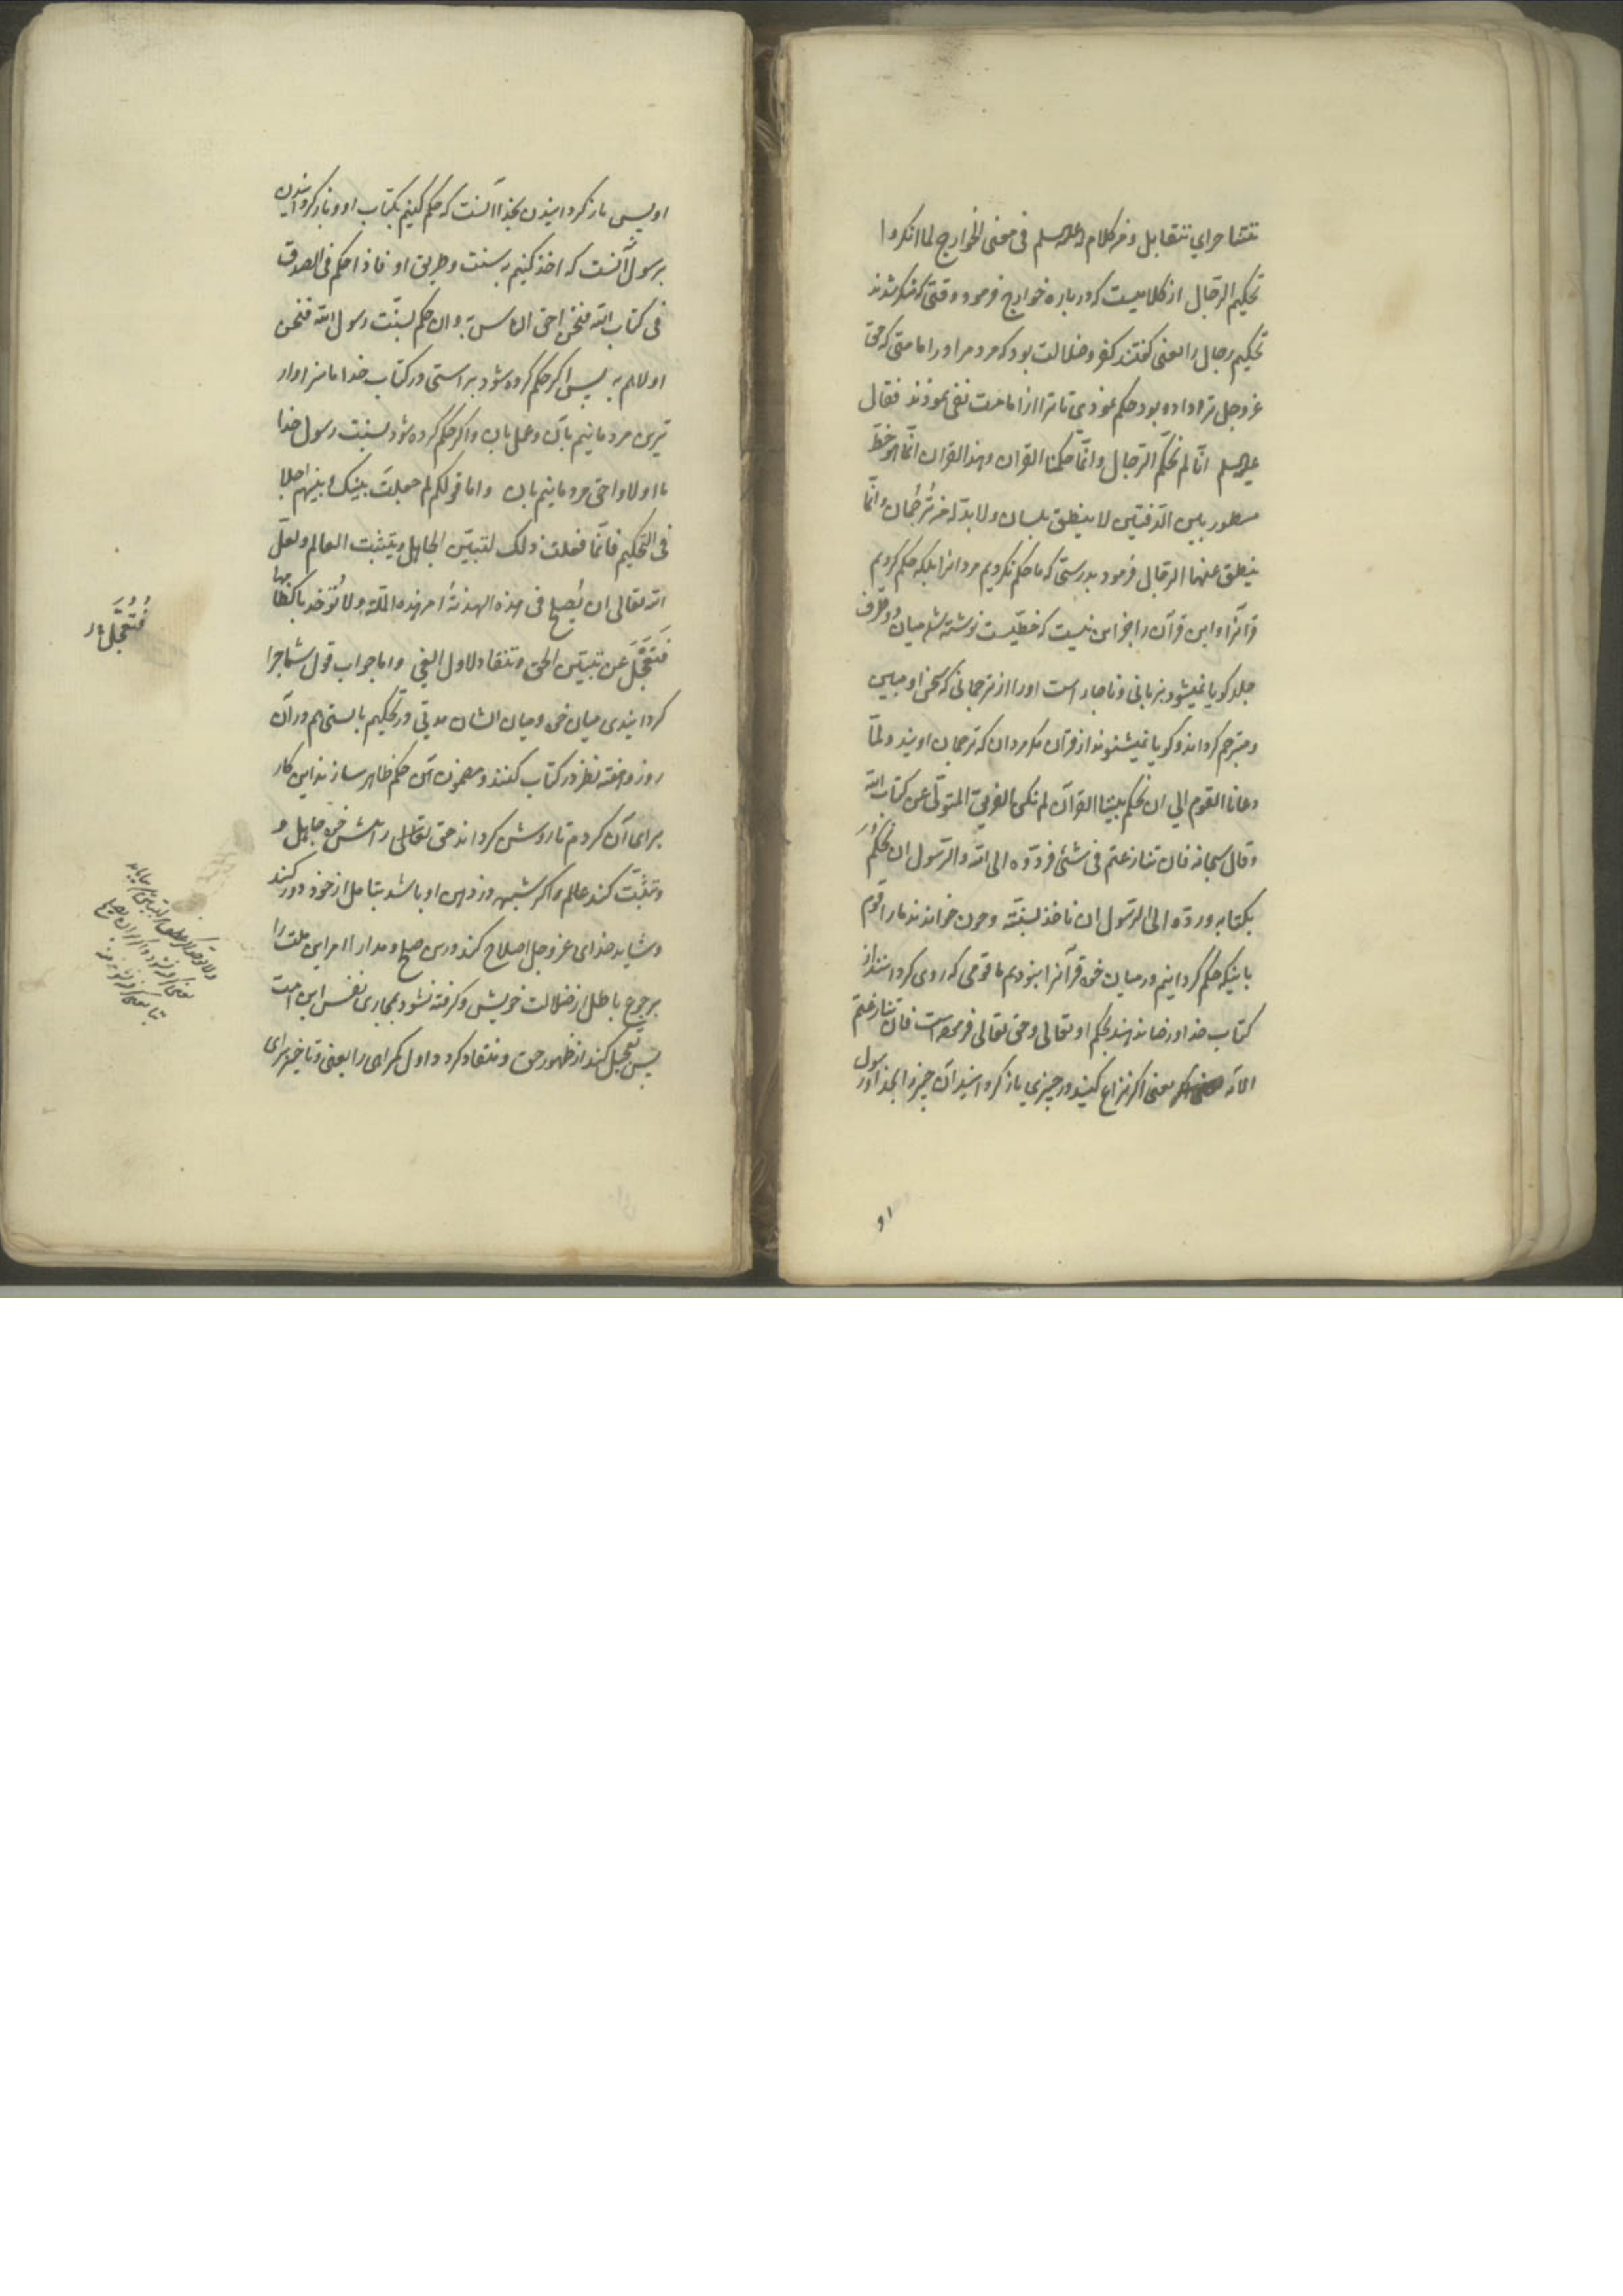 تتشاجر ای تتقابل ومن کلام له علیه السلم فی معنی الخوارج لما انکروا
تحکیم الرجال از کلامیست که درباره خوارج فرمود وقتی که منکر شدند
تحکیم رجال را یعنی گفتند کفر و ضلالت بود که مردم را در امامتی که حق
عز و جل ترا داده بود حکم نمودی تا ترا از امامت نفی نمودند فقال
علیه السلم انّا لم نحکّم الرّجال وانّما حکّمنا القران وهذا القران انّما هو خطّ
مسطور بین الدّفتین لا ینطق بلسان ولا بدّ له من تُرجُمان وانّما
ینطق عنها الرجال فرمود بدرستی که ما حکم نکردیم مردانرا بلکه حکم کردیم
قرآنرا و این قرآن را جز این نیست که خطّیست نوشته شده میان دو طرف
جلد گویا نمیشود بزبانی و ناچار است او را از ترجمانی که سخن او مبین
و مترجم گرداند و گویا نمیشوند از قرآن مگر مردان که ترجمان اویند ولمّا
دعانا القوم الی ان نحکم بیننا القرآن لم نکن الفریق المتولّی عن کتاب الله
وقال سبحانه فان تنازعتم فی شئ فردّوه الی الله والرّسول ان نحکُمَ
بکتابه وردّه الی الرّسول ان ناخذ بسنّته وچون خواندند ما را قوم
باینکه حکم گردانیم در میان خود قرآنرا نبودیم ما قومی که روی گردانند از
کتاب خدا و رضا ندهند بحکم او تعالی وحق تعالی فرموده است فان تنازعتم
الآیه یعنی اگر نزاع کنید در چیزی باز گردانید آن چیز را بخدا و رسول
او
او پس باز گردانیدن بخدا آنست که حکم کنیم بکتاب او و باز گردانیدن
برسولش آنست که اخذ کنیم به سنت و طریق او فاذا حکم فی الصدق
فی کتاب الله فنحن احق الناس به وان حکم بسنّت رسول الله فنحن
اولاهم به پس اگر حکم کرده شود براستی در کتاب خدا ما سزاوار
ترین مردمانیم بآن و عمل بان و اگر حکم کرده شود بسنت رسول خدا
ما اولا و احق مردمانیم بان واما قولکم لم جعلت بینک وبینهم اجلا
فی التحکیم فانّما فعلت ذلک لتبیّن الجاهل ویتثبت العالم ولعلّ
الله تعالی ان یُصلح فی هذه الهدنة امر هذه الامّة ولا تُؤخذ باکظامها
فَتَعَجَّلَ عن تبیّن الحق وتنقاد لاول الغی و اما جواب قول شما چرا
گردانیدی میان خود و میان ایشان مدتی در تحکیم بایستی هم در آن
روز و هفته نظر در کتاب کنند و مضمون آن حکم ظاهر سازند این کار
برای آن کردم تا روشن گرداند حق تعالی راهش خود جاهل و
و تثبّت کند عالم و اگر شبهه در ذهن او باشد بتامل از خود دور کند
و شاید خدای عز و جل اصلاح کند درین صلح و مدارا امر این ملت را
برجوع باطل از ضلالت خویش و گرفته نشود مجاری نفس این امت
پس تعجیل کند از ظهور حق و منقاد گردد اول گمراهی را یعنی و تاخیر برای
فتُعُجَّلَ